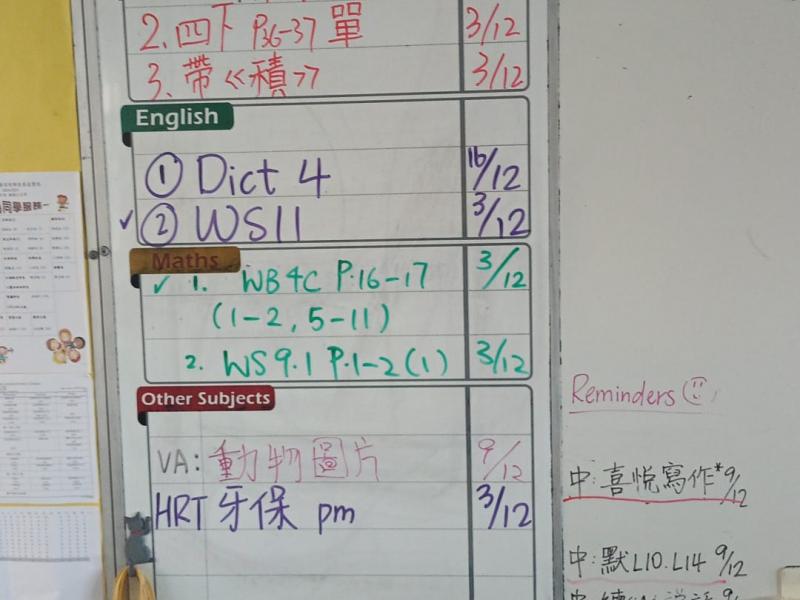 2. 四下 P36-37 單 3/12
3. 帶《積》 3/12
English
① Dict 4 16/12
✓ ② WS11 3/12
Maths
✓ 1. WB4C P.16-17 3/12
(1-2, 5-11)
2. WS9.1 P.1-2(1) 3/12
Other Subjects
VA: 動物圖片 9/12
HRT 牙保 pm 3/12
Reminders
中:喜悅寫作* 9/12
中:默L10.L14 9/12